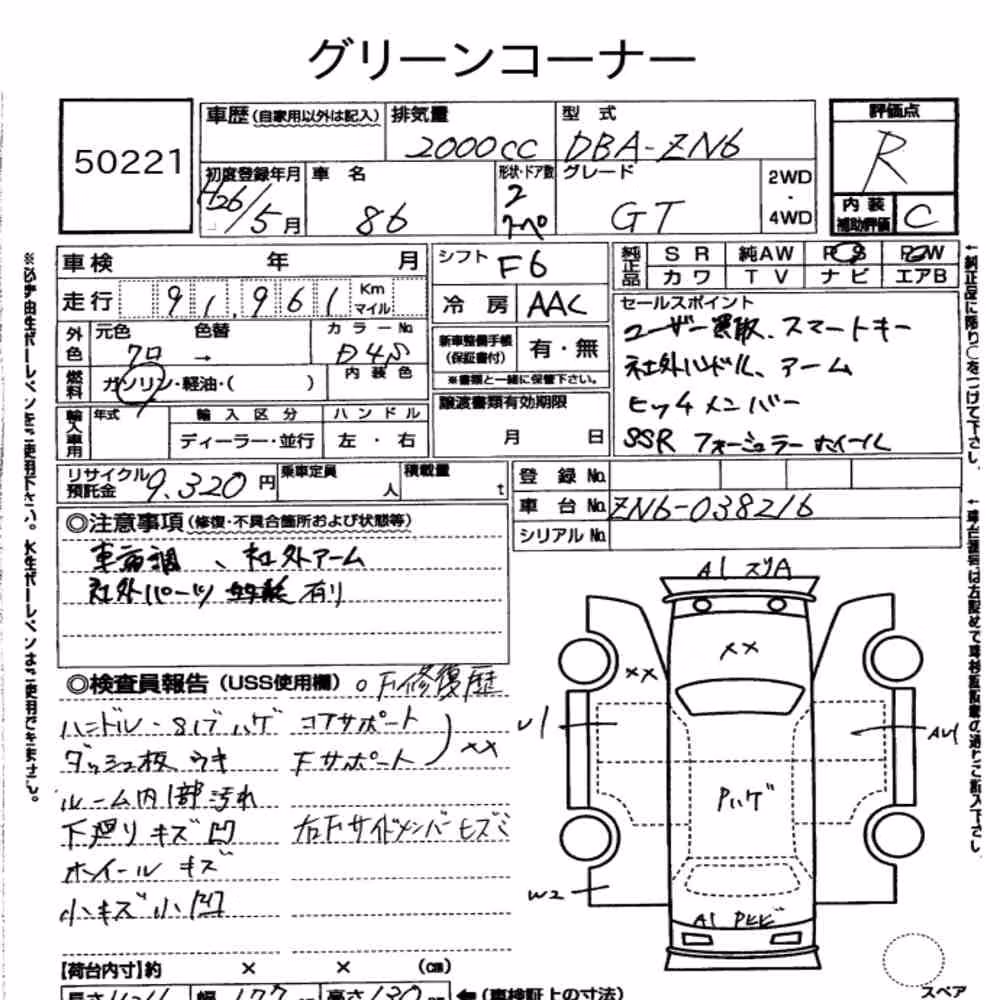 グリーンコーナー
50221
車歴 (自家用以外は記入)
排気量 2000cc
型式 DBA-ZN6
評価点 R
初度登録年月 H26/5月
車名 86
形状・ドア数 2 クーペ
グレード GT
2WD
・
4WD
内装補助評価 C
車検 年 月
シフト F6
純正品 SR 純AW PS PW
カワ TV ナビ エアB
走行 91,961 Km マイル
冷房 AAC
セールスポイント
ユーザー買取、スマートキー
社外ハンドル、アーム
ヒッチメンバー
SSR フォーミュラーホイール
外色 元色 クロ 色替 →
カラーNo. D4S
内装色
新車整備手帳(保証書付) 有・無
※書類と一緒に保管下さい。
燃料 ガソリン・軽油・( )
譲渡書類有効期限
月 日
輸入車用 年式 輸入区分 ハンドル
ディーラー・並行 左・右
リサイクル預託金 9,320円
乗車定員 人
積載量 t
登録No.
車台No. ZN6-038216
シリアルNo.
◎注意事項 (修復・不具合箇所および状態等)
車高調、社外アーム
社外パーツ 有り
◎検査員報告 (USS使用欄) 。F修復歴
ハンドル・S/ブハゲ コアサポート
ダッシュ板 ウキ Fサポート XX
ルーム内1部汚れ
下廻りキズ凹 右Fサイドメンバーヒズミ
ホイールキズ
小キズ小凹
A1 スリA
XX
XX
U1
AU1
Pハゲ
W2
A1 Pヒビ
【荷台内寸】約 × × (cm)
長さ 幅 177 高さ 130 ←(車検証上の寸法)
スペア
※必ず油性ボールペンをご使用下さい。水性ボールペンはご使用できません。
↑純正品に限り○をつけて下さい。